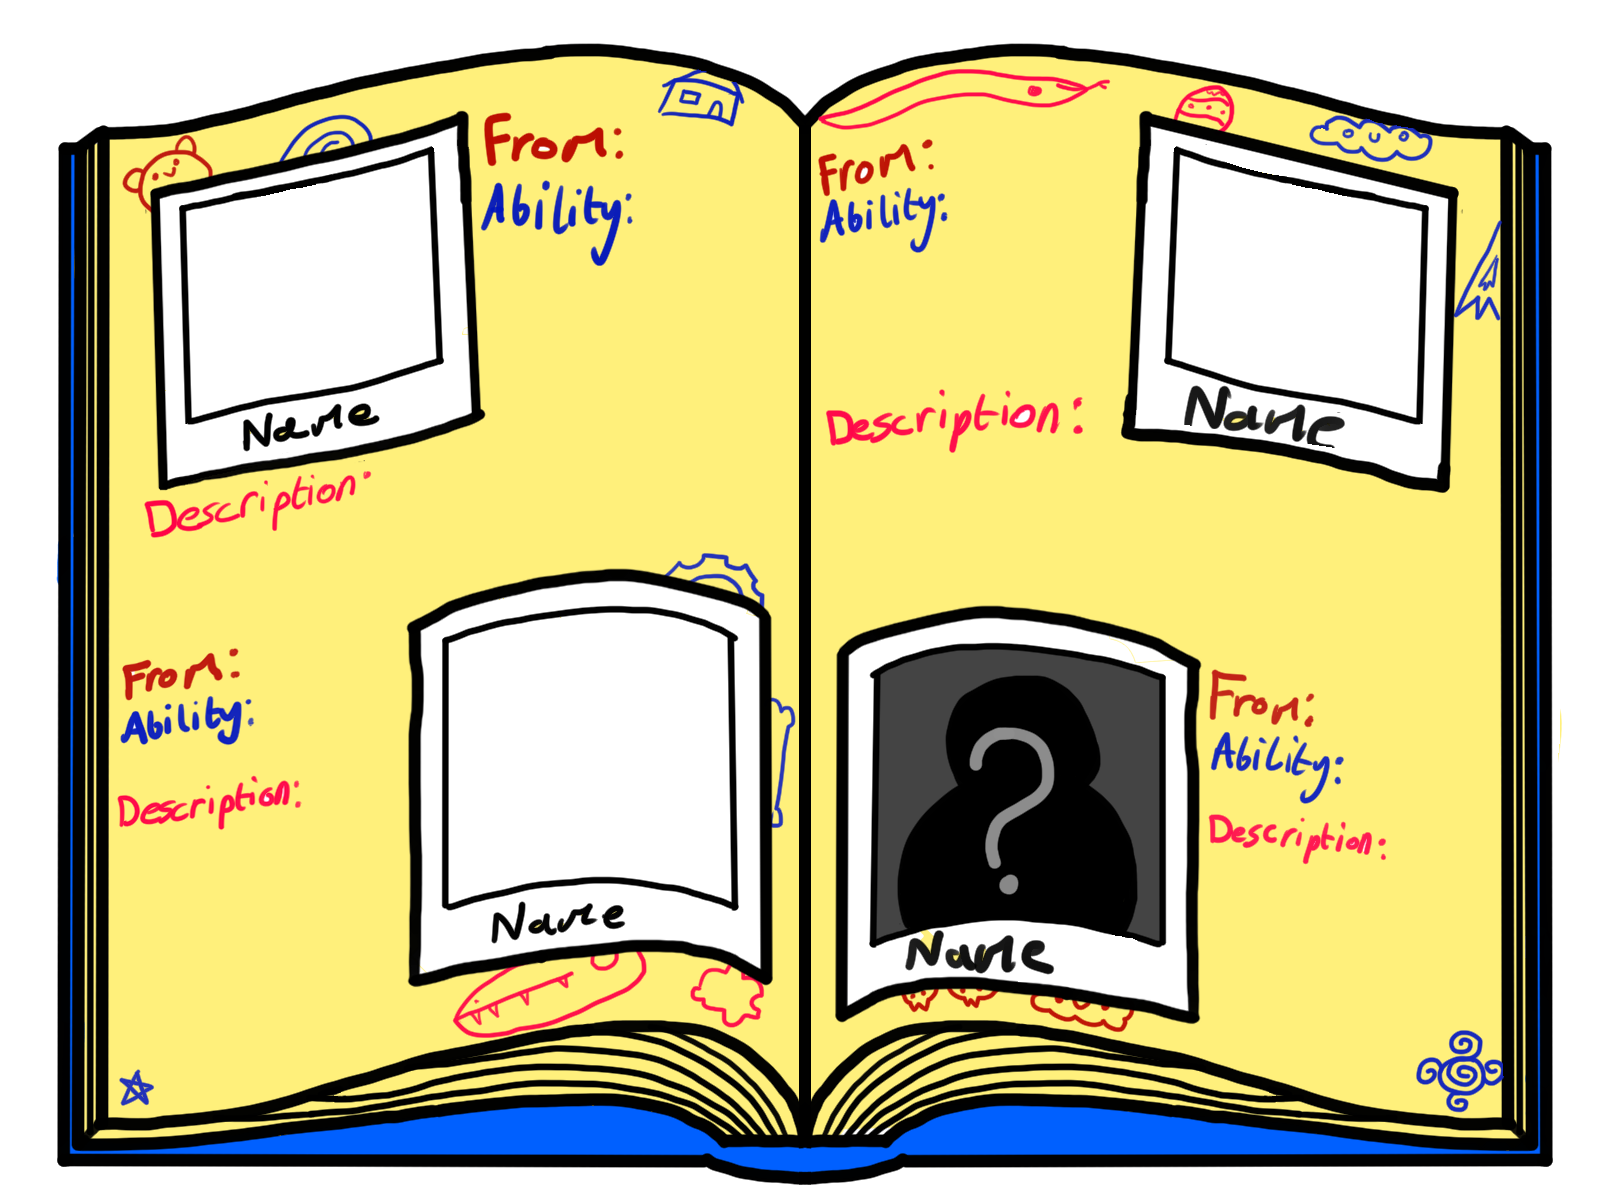 From:
Ability:
Name
Description:
From:
Ability:
Description:
Name
From:
Ability:
Description:
Name
?
Name
From:
Ability:
Description: